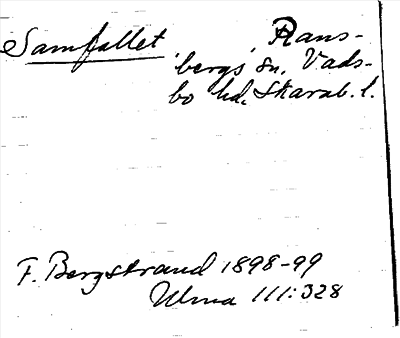 Samfallet Rans-
bergs sn. Vads-
bo hd. Skarab. l.
F. Bergstrand 1898-99
Ulma 111:328